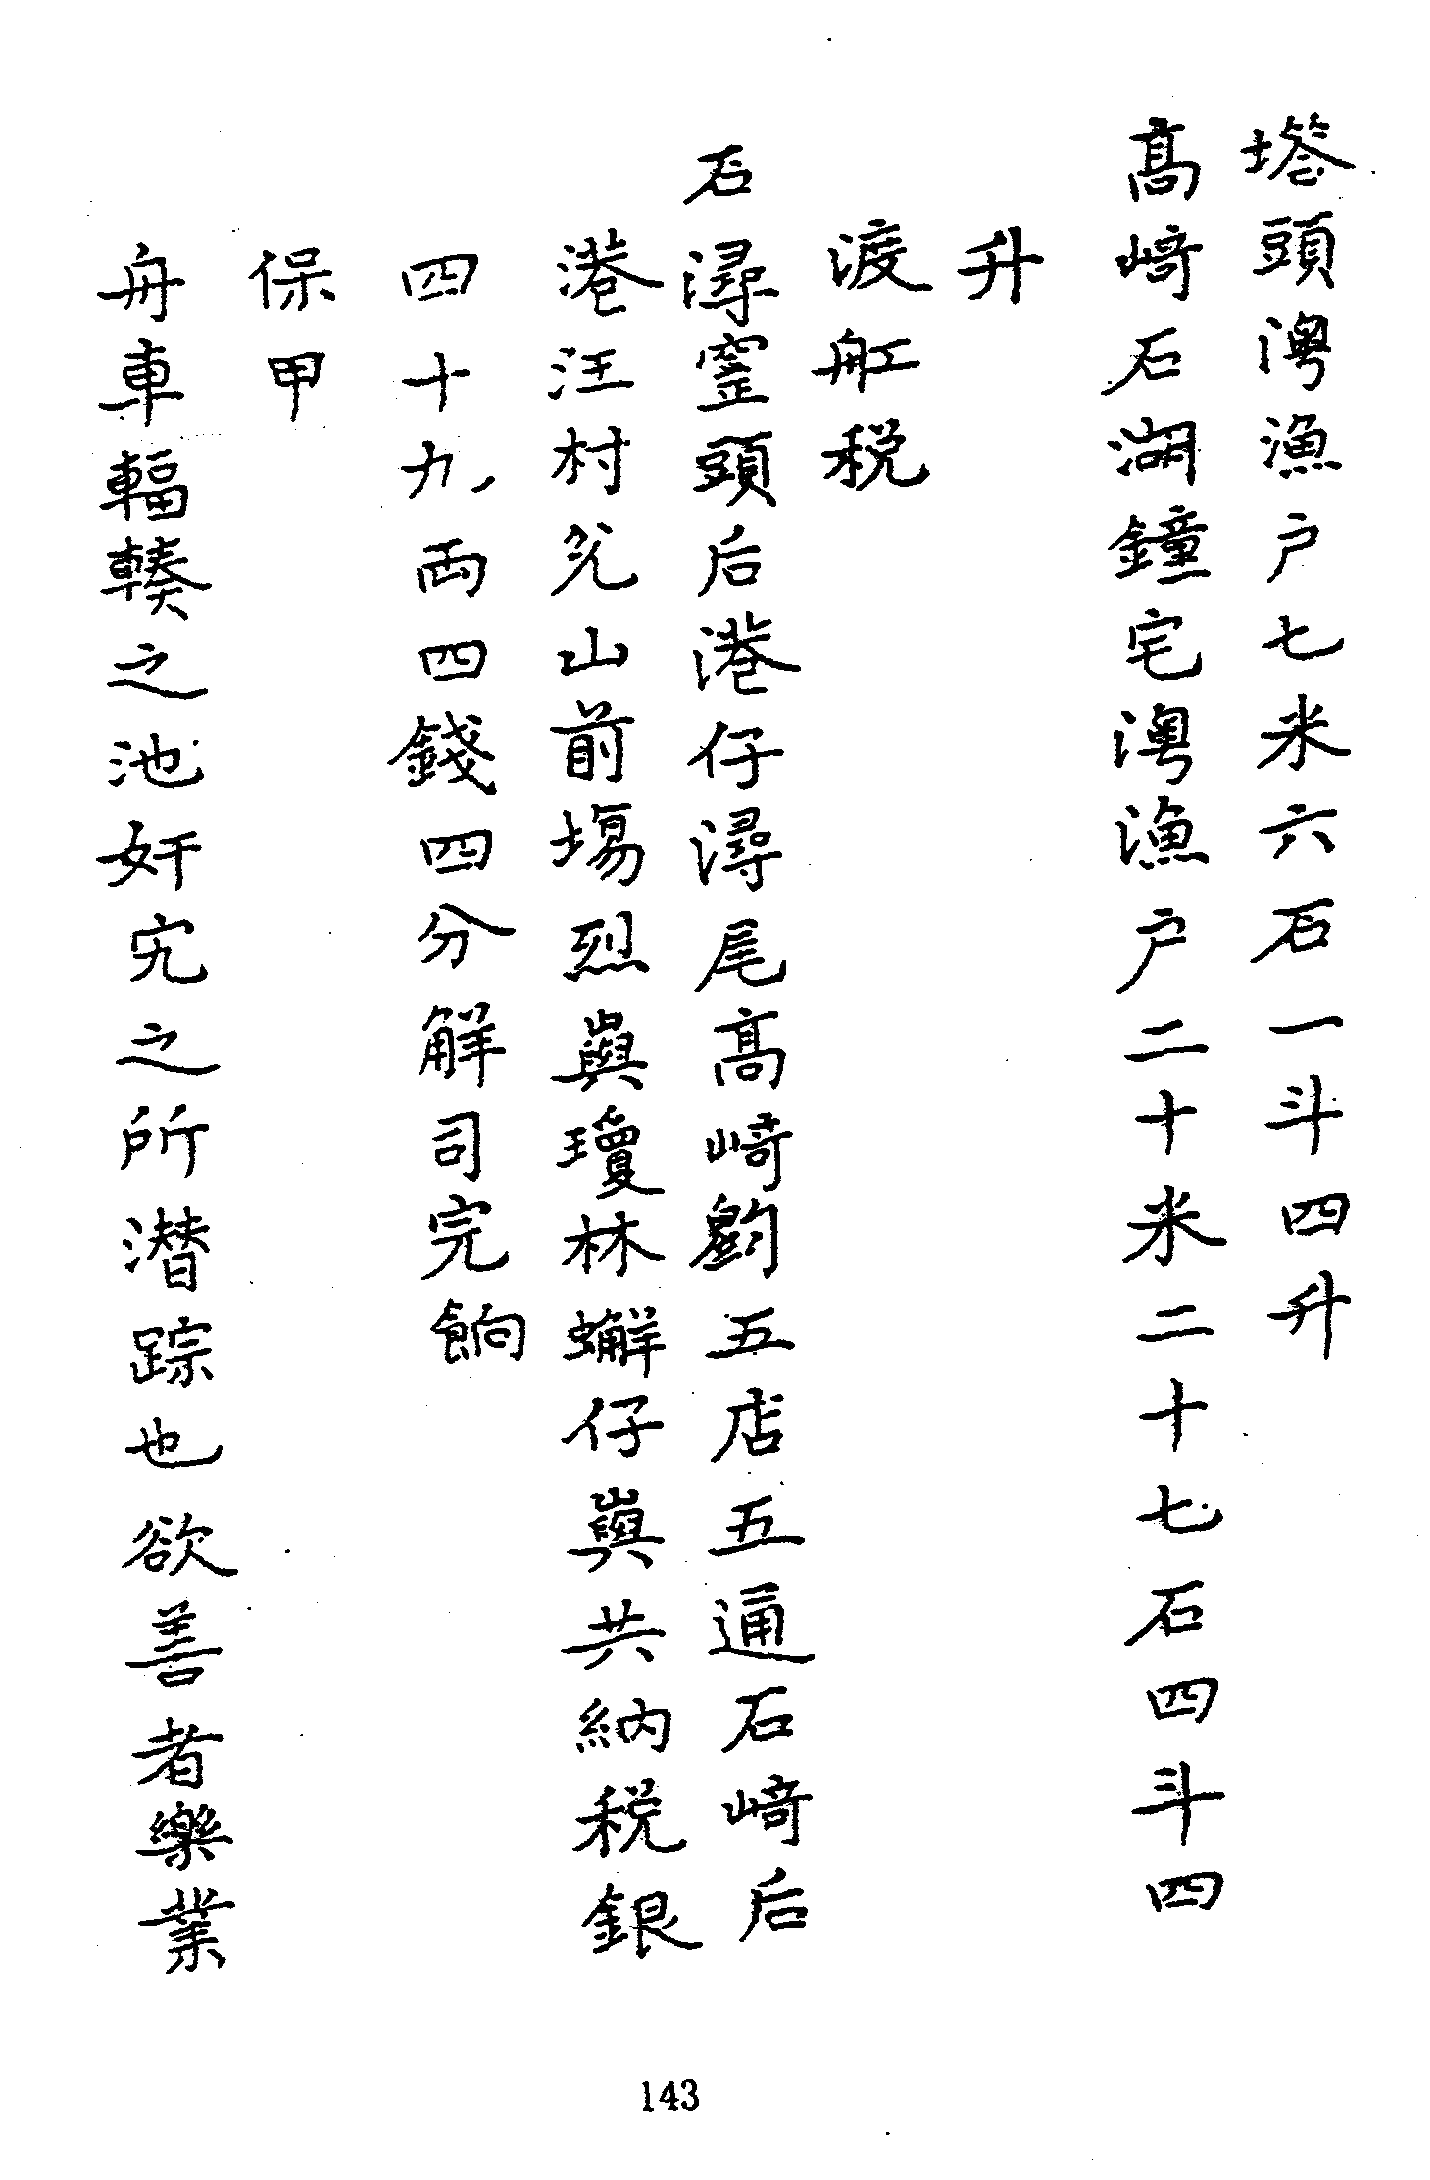 塔頭澳漁户七米六石一斗四升
高崎石湖鐘宅澳漁户二十米二十七石四斗四
升
渡舡税
石潯窒頭后港仔潯尾高崎劉五店五通石崎后
港汪村兊山前塲烈嶼瓊林蠏仔嶼共納税銀
四十九両四錢四分解司完餉
保甲
舟車輻輳之池奸宄之所潜踪也欲善者樂業
143